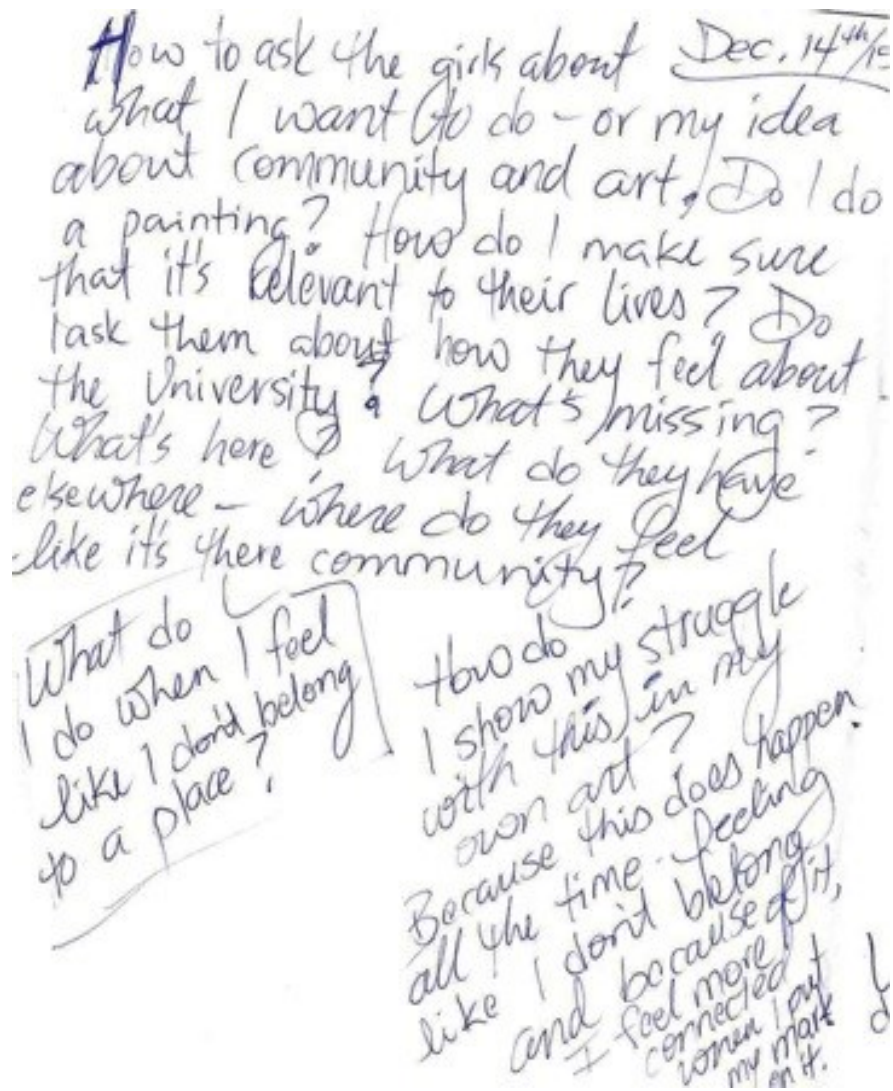 How to ask the girls about Dec. 14th/15
what I want to do - or my idea
about community and art. Do I do
a painting? How do I make sure
that it's relevant to their lives? Do
I ask them about how they feel about
the University? What's missing?
What's here? What do they have
elsewhere - where do they feel
like it's there community?
What do
I do when I feel
like I don't belong
to a place?
How do
I show my struggle
with this in my
own art?
Because this does happen
all the time - feeling
like I don't belong
and because of it,
I feel more
connected
when I put
my mark
on it.